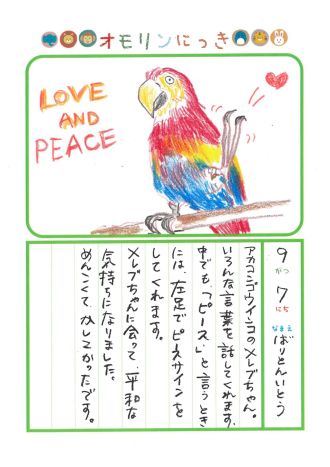 オモリンにっき
LOVE
AND
PEACE
9がつ7にち なまえ ばりとんいとう
アカコンゴウインコのメレブちゃん。
いろんな言葉を話してくれます。
中でも、「ピース」と言うとき
には、左足でピースサインを
してくれます。
メレブちゃんに会って、平和な
気持ちになりました。
めんこくて、かしこかったです。